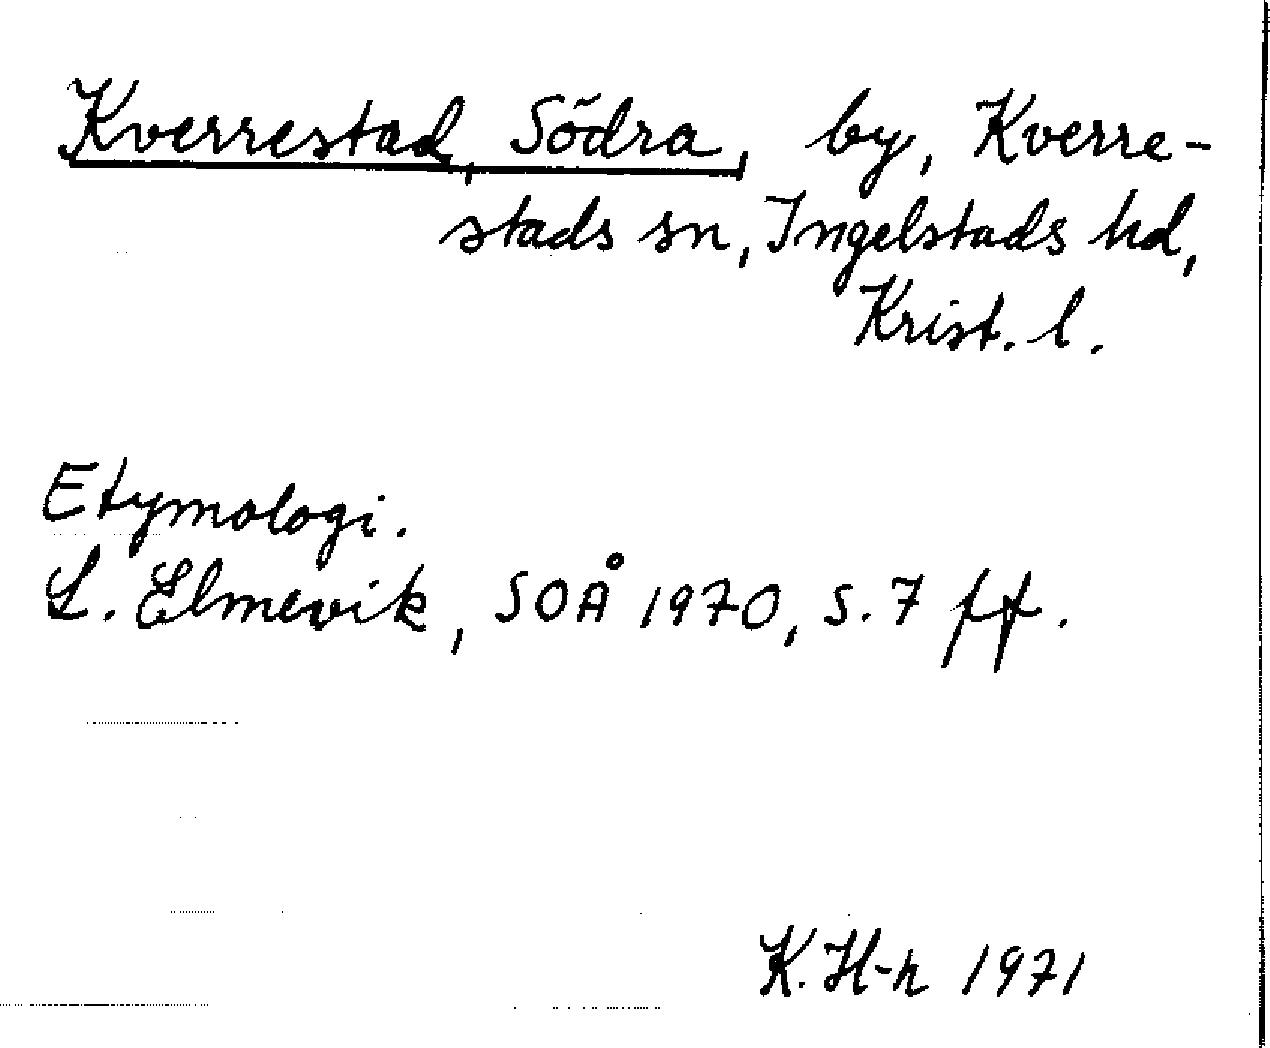 Kverrestad, Södra, by, Kverre-
stads sn, Ingelstads hd,
Krist. l.
Etymologi.
L. Elmevik, SOÅ 1970, S. 7 ff.
K. H-n 1971